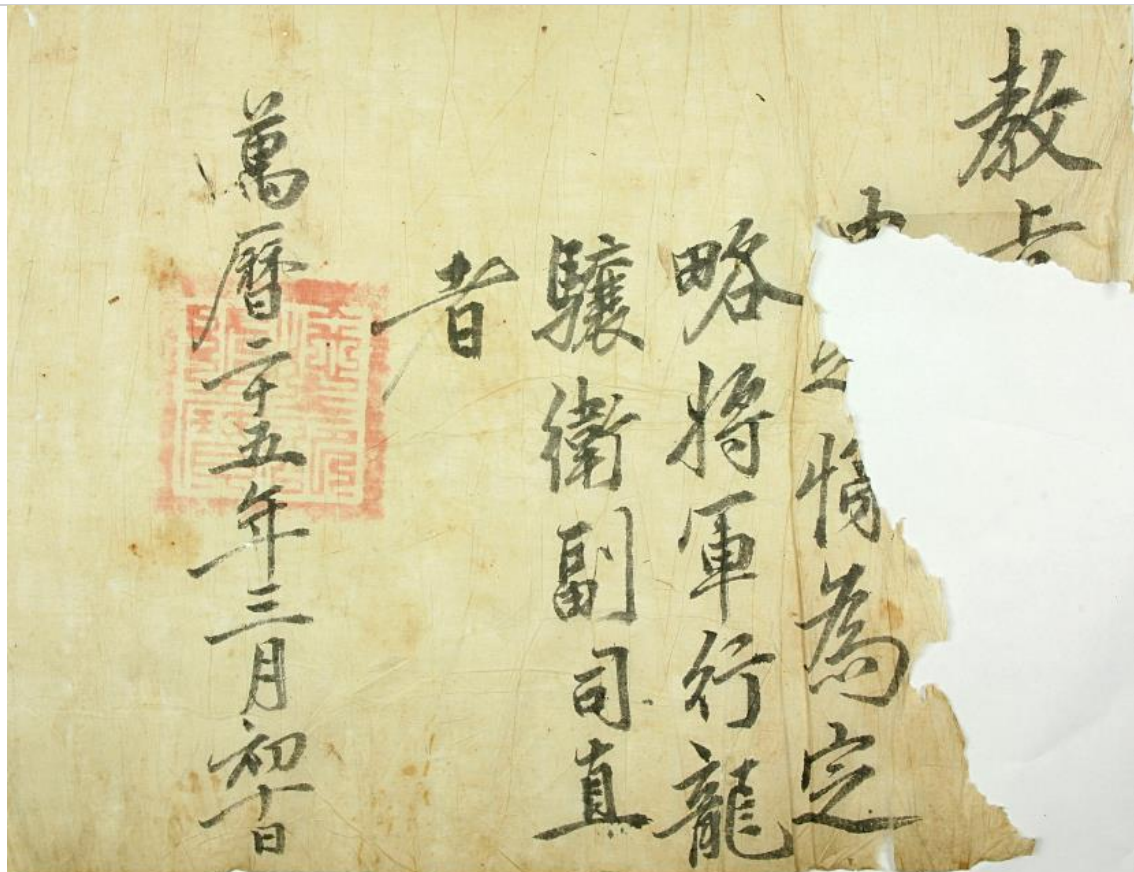 敎
為定
略將軍行龍
驤衛副司直
者
萬曆二十五年三月初十日